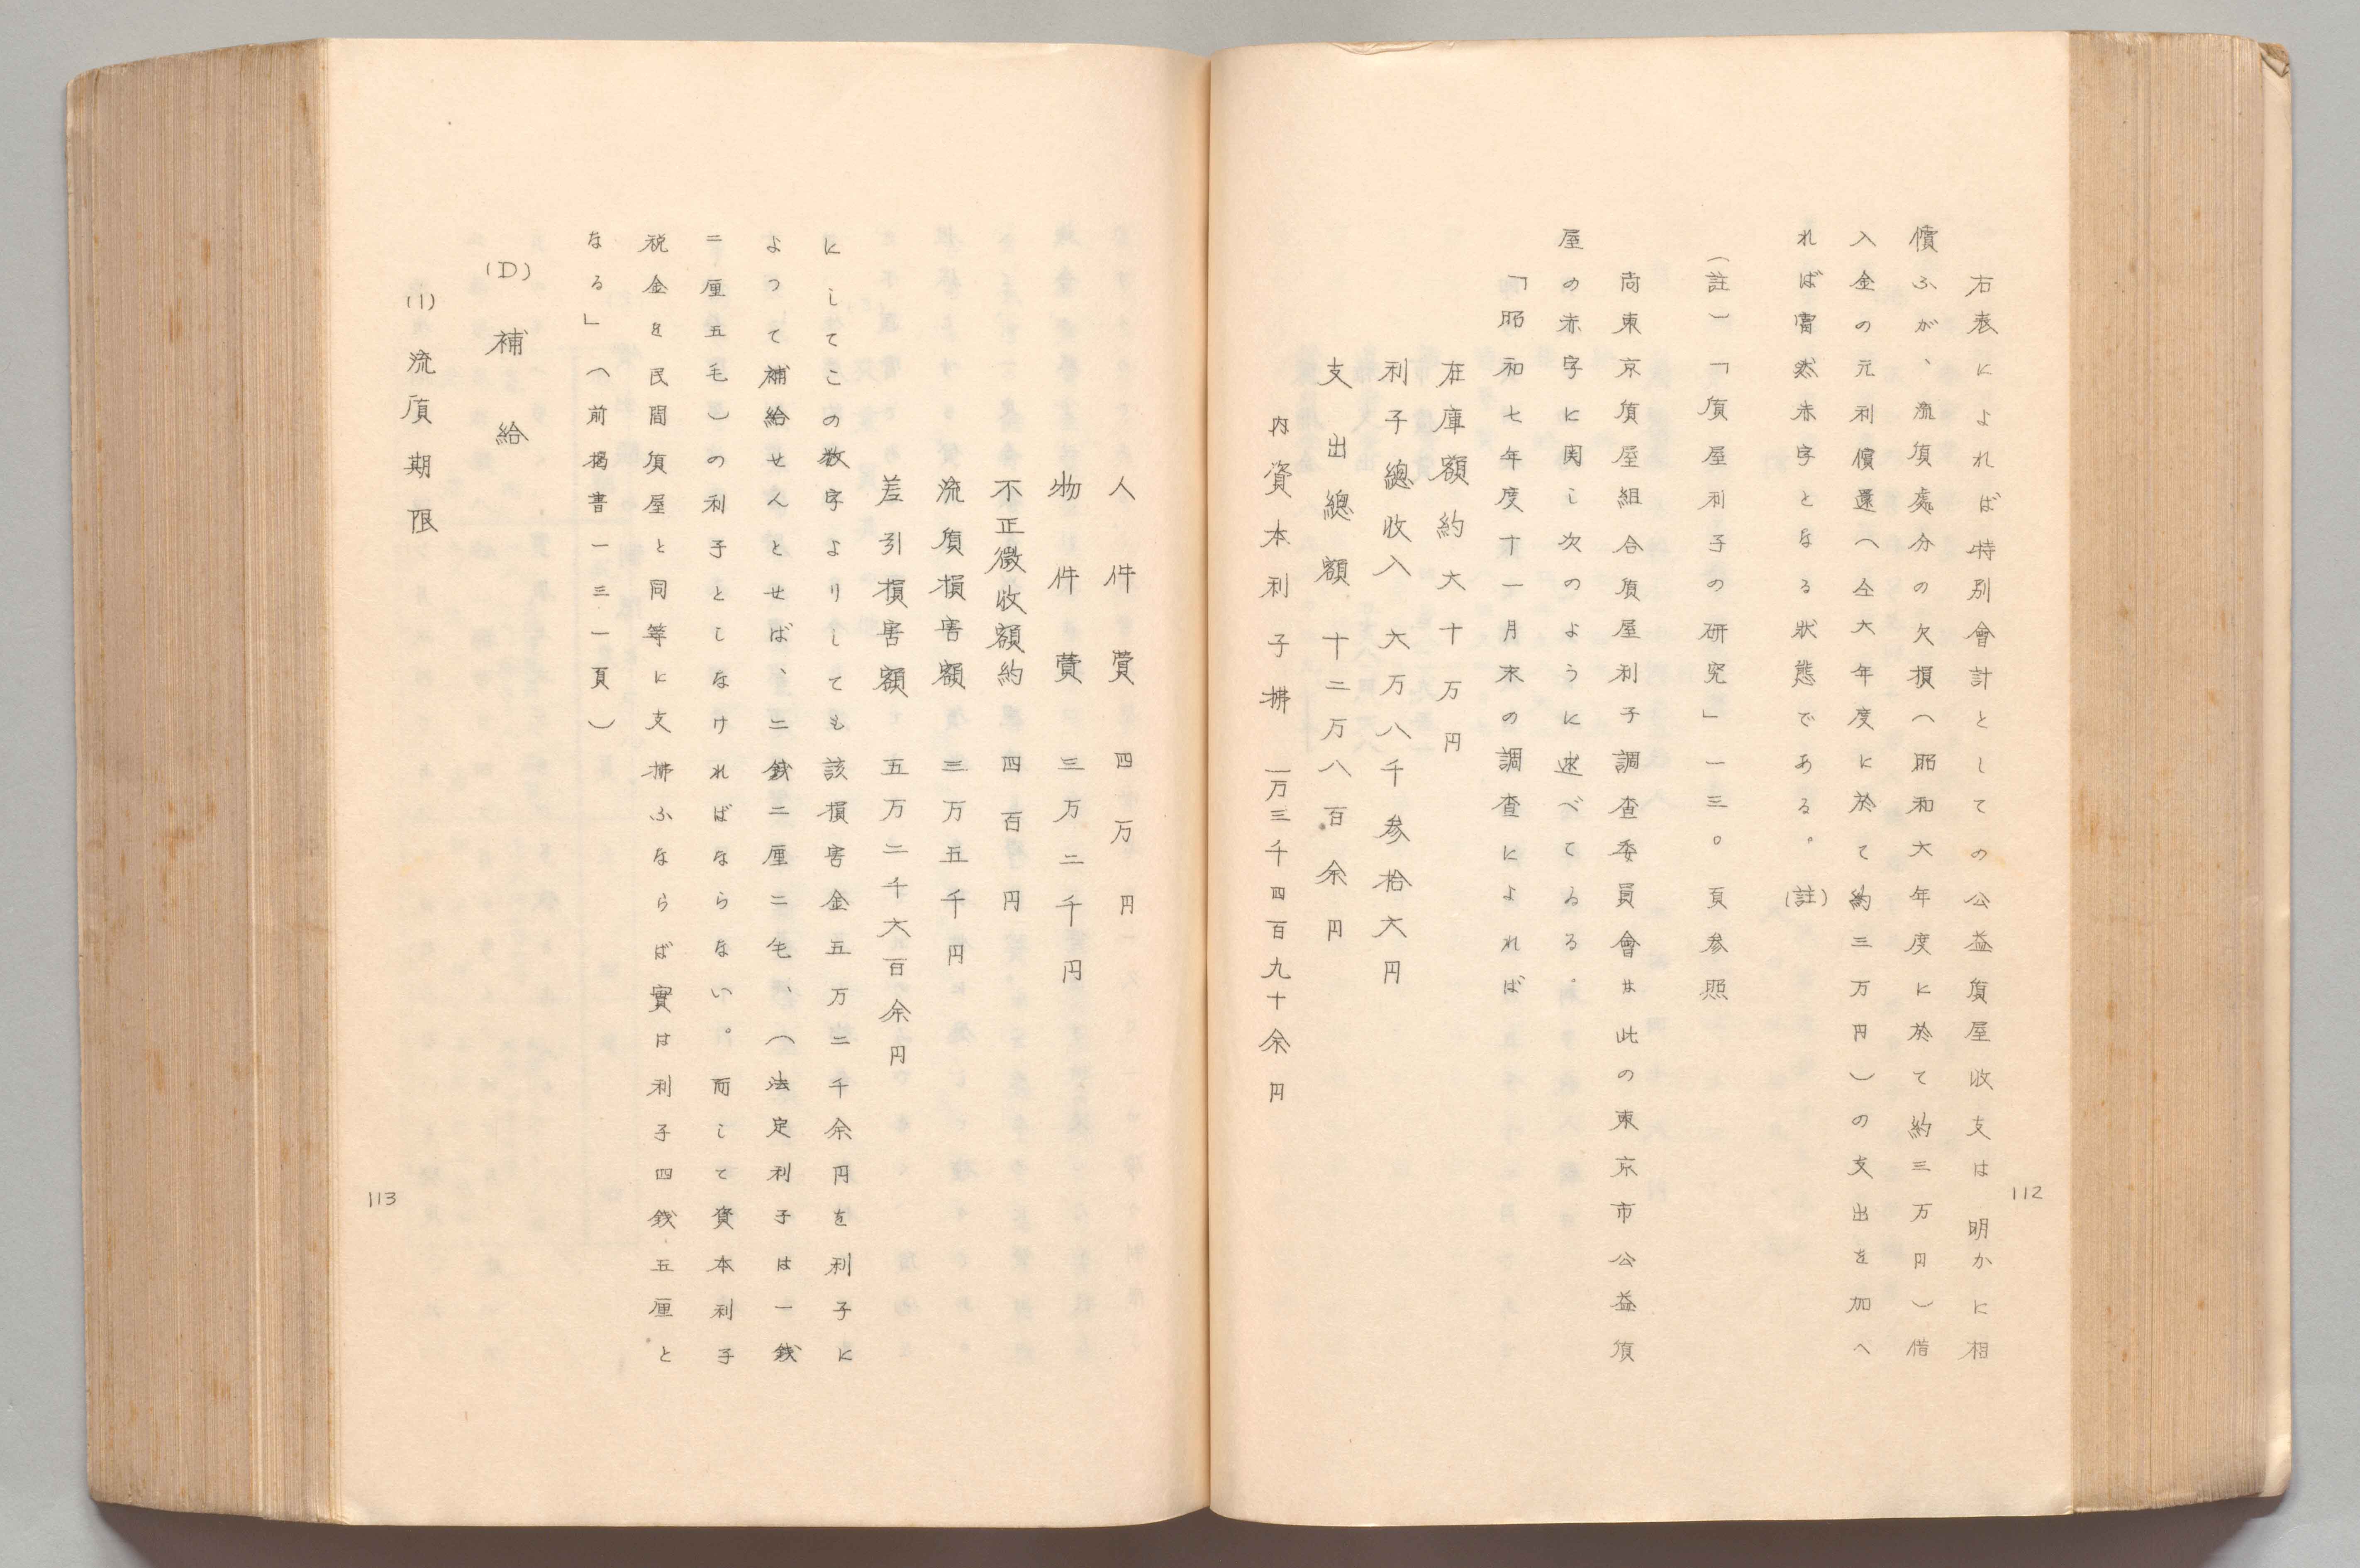 右表によれば特別會計としての公益質屋收支は明かに相
償ふが、流質處分の欠損(昭和六年度に於て約三万円)借
入金の元利償還(仝六年度に於て約三万円)の支出を加へ
れば當然赤字となる狀態である。(註)
(註)「質屋利子の研究」一三〇頁参照
尚東京質屋組合質屋利子調査委員會は此の東京市公益質
屋の赤字に関し次のように述べてゐる。
「昭和七年度十一月末の調査によれば
在庫額約六十万円
利子總收入 六万八千参拾六円
支出總額 十二万八百余円
内資本利子拂 一万三千四百九十余円
112
人件費 四万円
物件費 三万二千円
不正徴收額約 四百円
流質損害額 三万五千円
差引損害額 五万二千六百余円
にしてこの数字よりしても該損害金五万二千余円を利子に
よつて補給せんとせば、二銭二厘二毛、(法定利子は一銭
二厘五毛)の利子としなければならない。而して資本利子
税金を民間質屋と同等に支拂ふならば實は利子四銭五厘と
なる」(前揭書一三一頁)
(D) 補給
(1) 流質期限
113